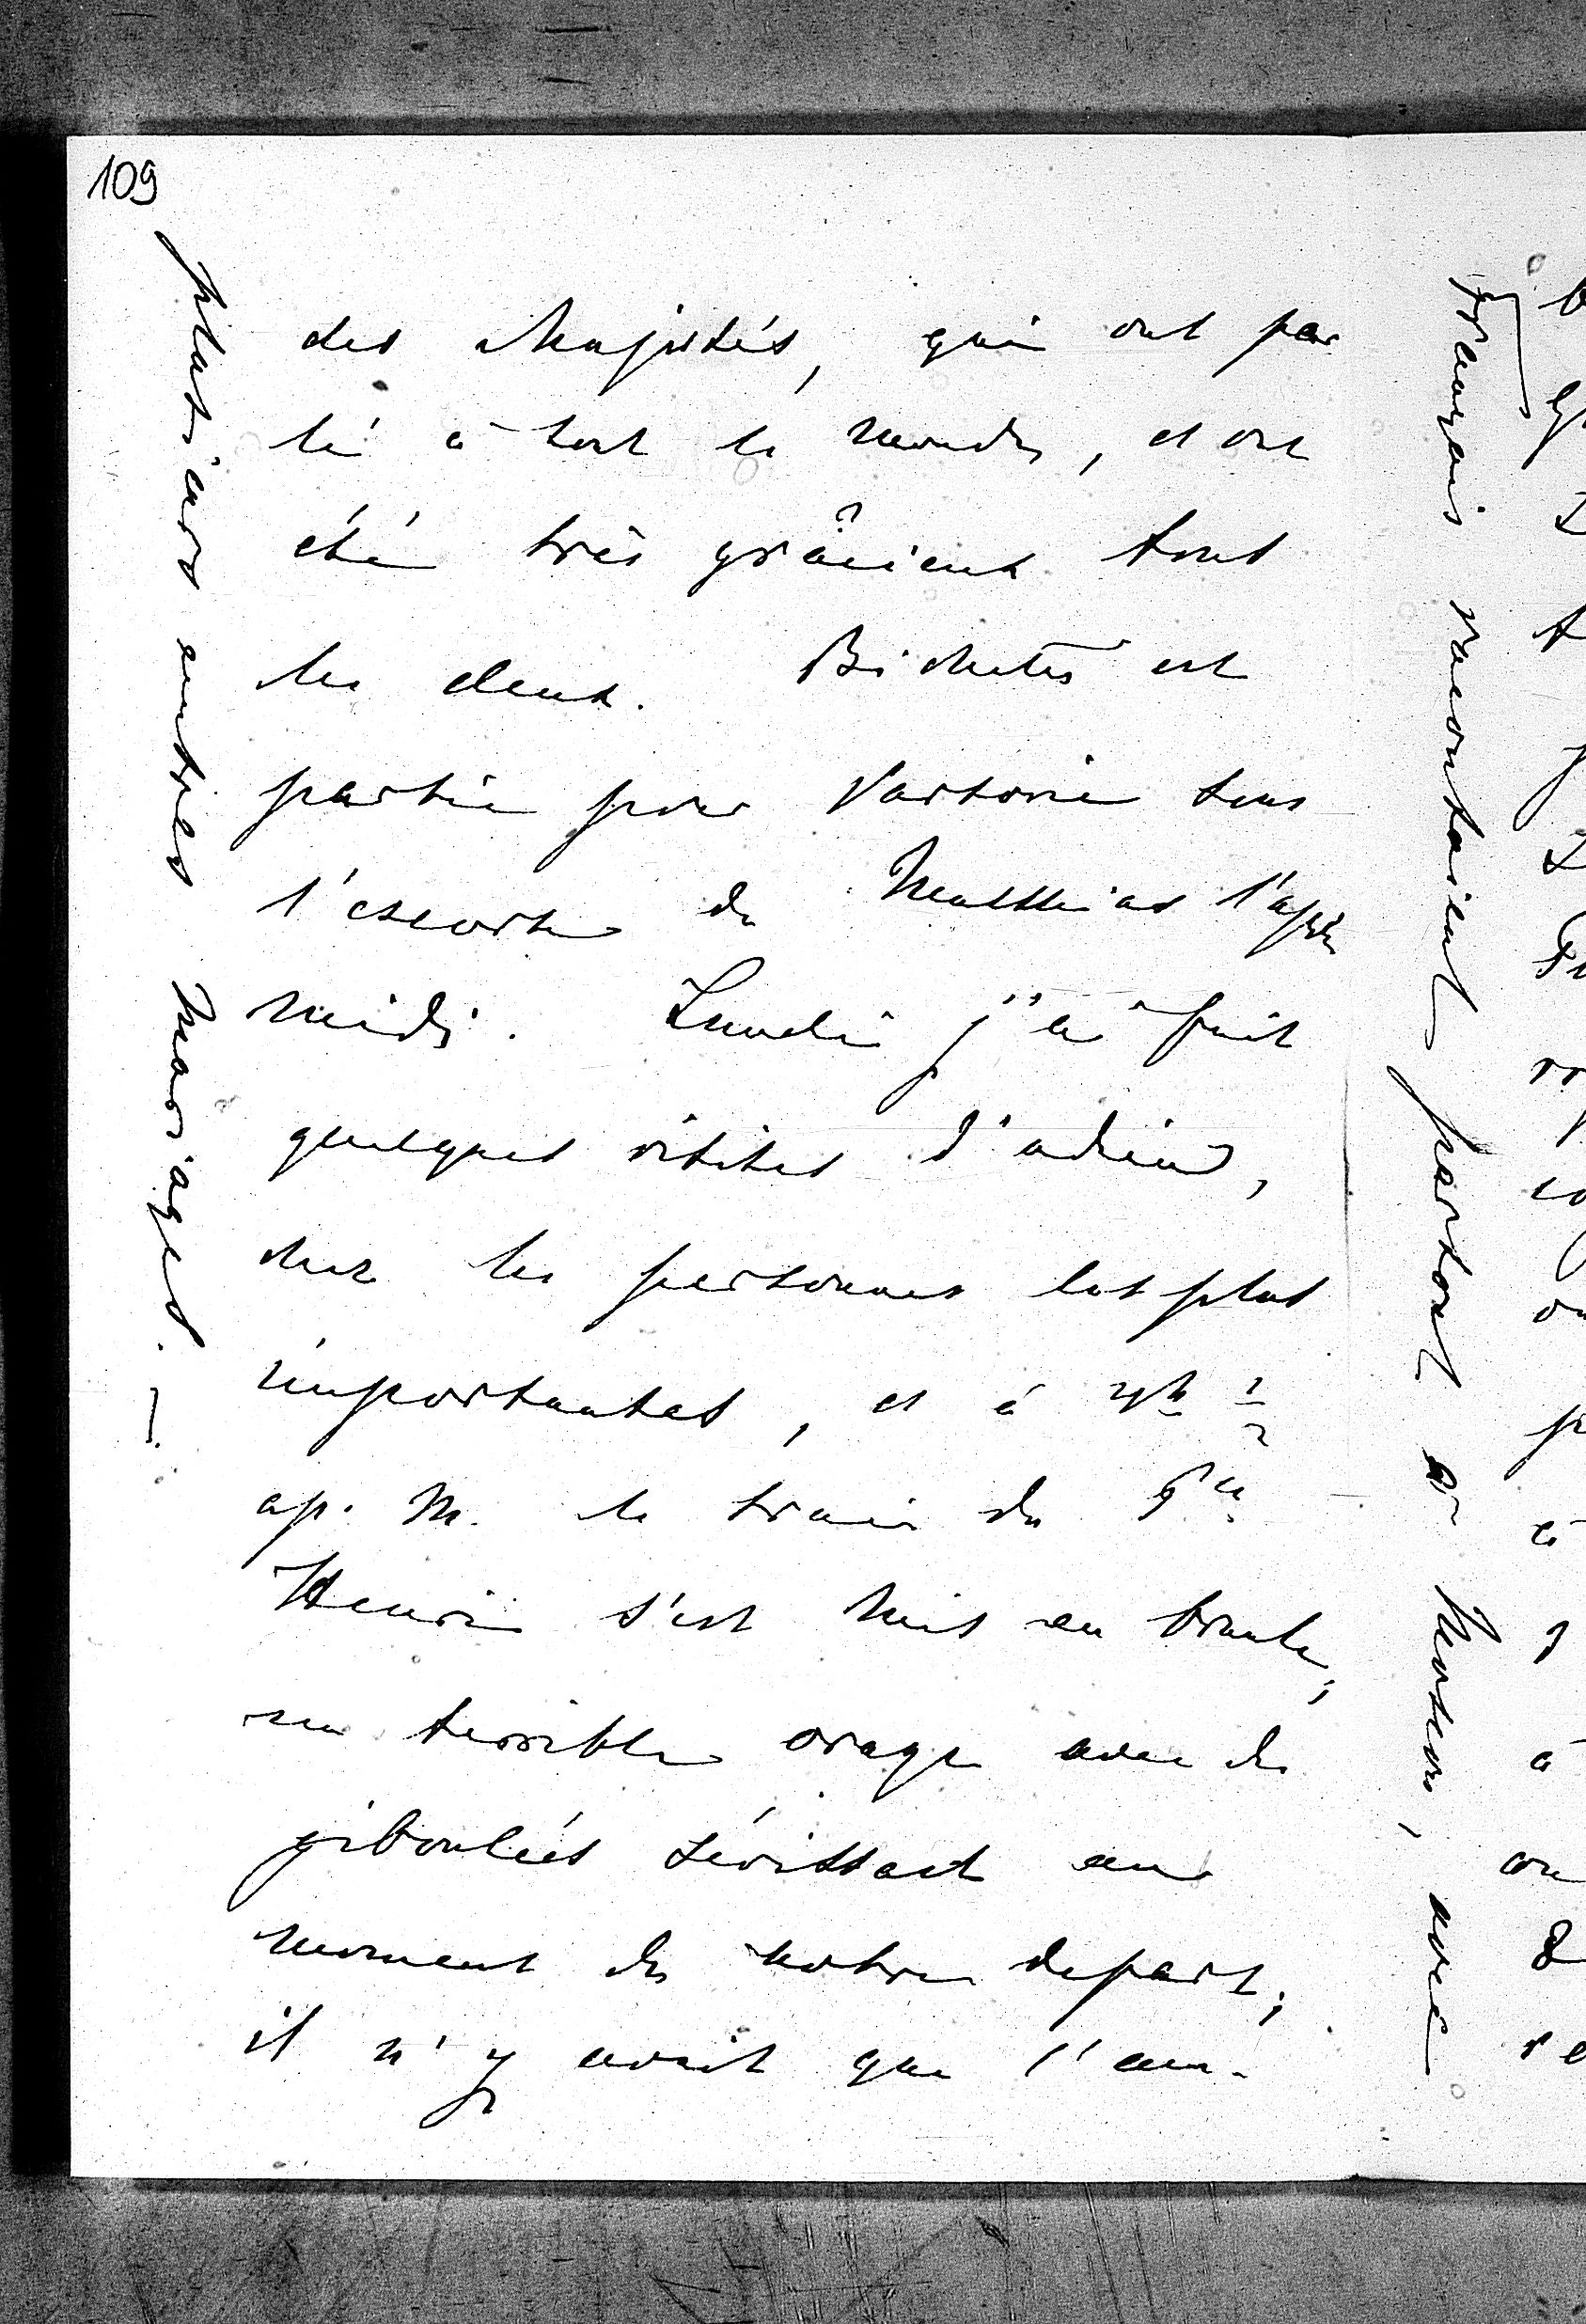 109
des Majestés, qui ont par
lé à tout le monde, et ont
été très grâcieux tous
les deux. Bichette est
partie pour Varsovie sous
l'escorte de Matthias l'après
midi. Lundi j'ai fait
quelques visites d'adieu,
chez les personnes les plus
importantes, et à 4h 1/2
ap. M. le train du Pce
Henri s'est mis en branle;
un terrible orage avec des
giboulées sévissait au
moment de notre depart;
il n'y avait que l'am-
plusieurs autres mariages. —
Français racontaient partout à Moscou, avec